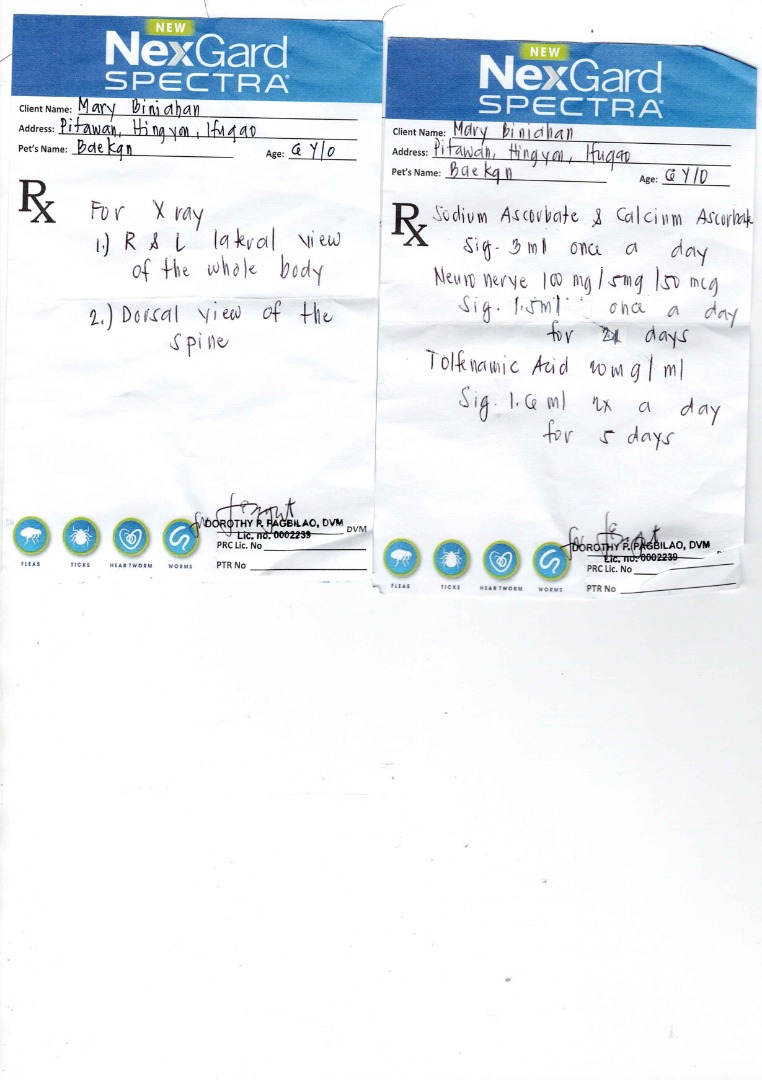 NEW
NexGard
SPECTRA
Client Name: Mary Biniahan
Address: Pitawan, Hingyon, Ifugao
Pet's Name: Baekgn Age: 6 Y/O
Rx
For X ray
1.) R & L lateral view
of the whole body
2.) Dorsal view of the
spine
DOROTHY P. PAGBILAO, DVM
DVM
Lic. no. 0002239
PRC Lic. No
PTR No
FLEAS TICKS HEARTWORM WORMS
NEW
NexGard
SPECTRA
Client Name: Mary Biniahan
Address: Pitawan, Hingyon, Ifugao
Pet's Name: Baekgn Age: 6 Y/O
Rx
Sodium Ascorbate & Calcium Ascorbate
Sig. 3 ml once a day
Neuro nerve 100 mg/5mg/50 mcg
Sig. 1.5ml once a day
for 21 days
Tolfenamic Acid 20mg/ml
Sig. 1.6 ml 2x a day
for 5 days
DOROTHY P. PAGBILAO, DVM
Lic. no. 0002239
PRC Lic. No
PTR No
FLEAS TICKS HEARTWORM WORMS